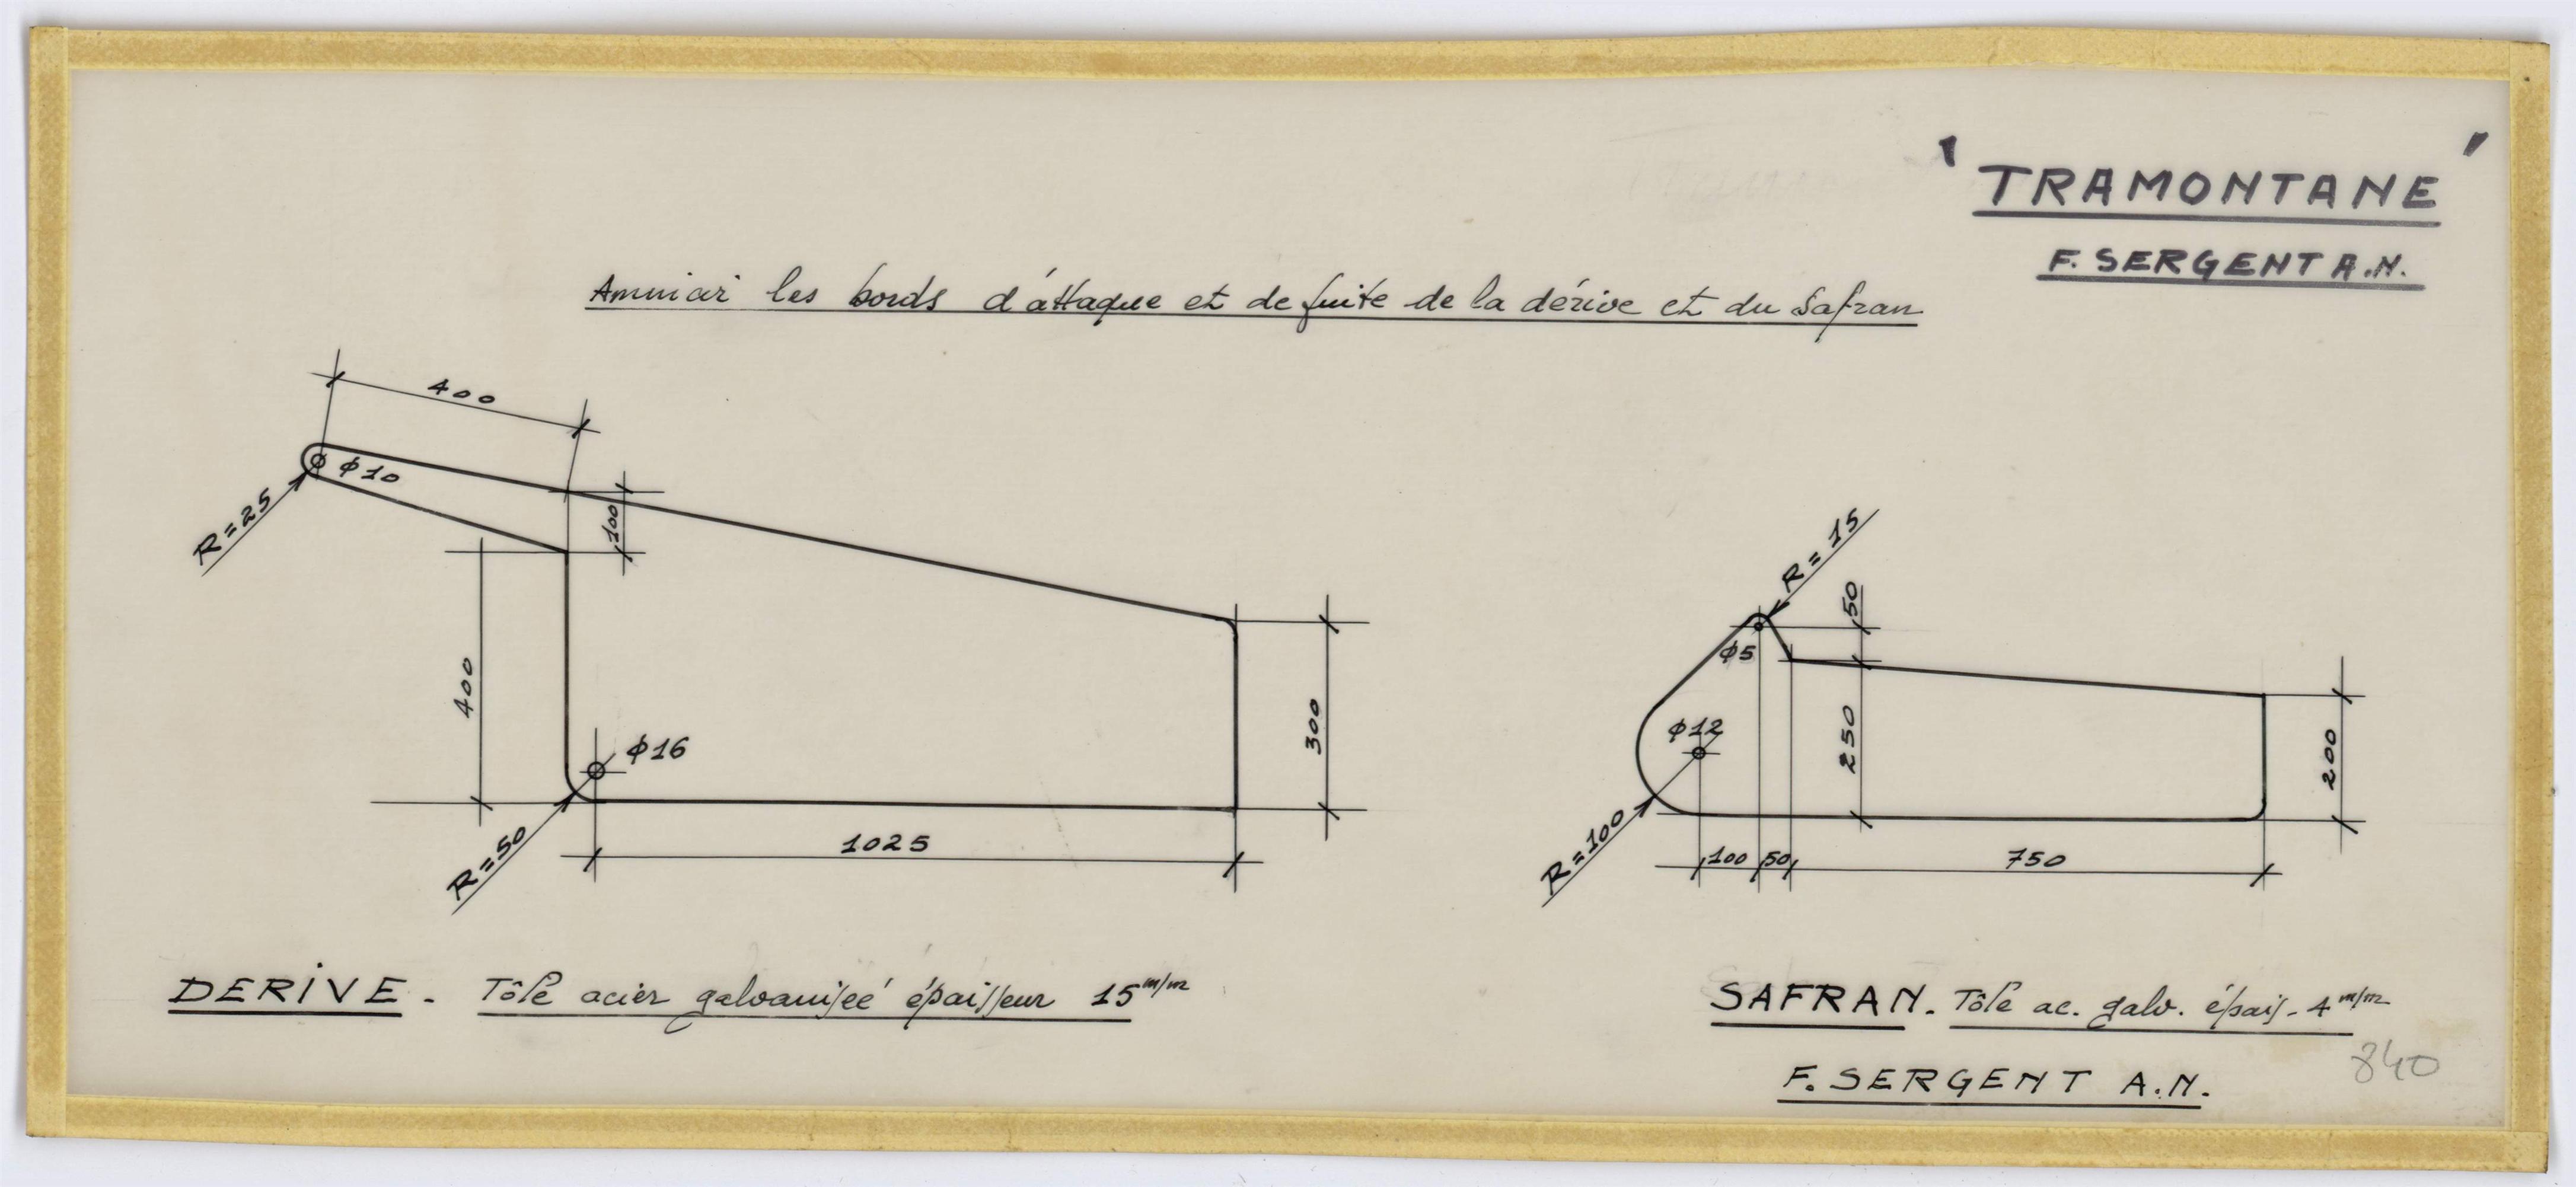 ' TRAMONTANE '
F. SERGENT A.N.
Amincir les bords d'attaque et de fuite de la dérive et du Safran
400
ϕ10
R=25
100
400
ϕ16
R=50
1025
300
R=15
50
ϕ5
ϕ12
250
200
R=100
100 50 750
DERIVE - Tôle acier galvanisée épaisseur 15 m/m
SAFRAN. Tôle ac. galv. épais. 4 m/m
F. SERGENT A.N.
840